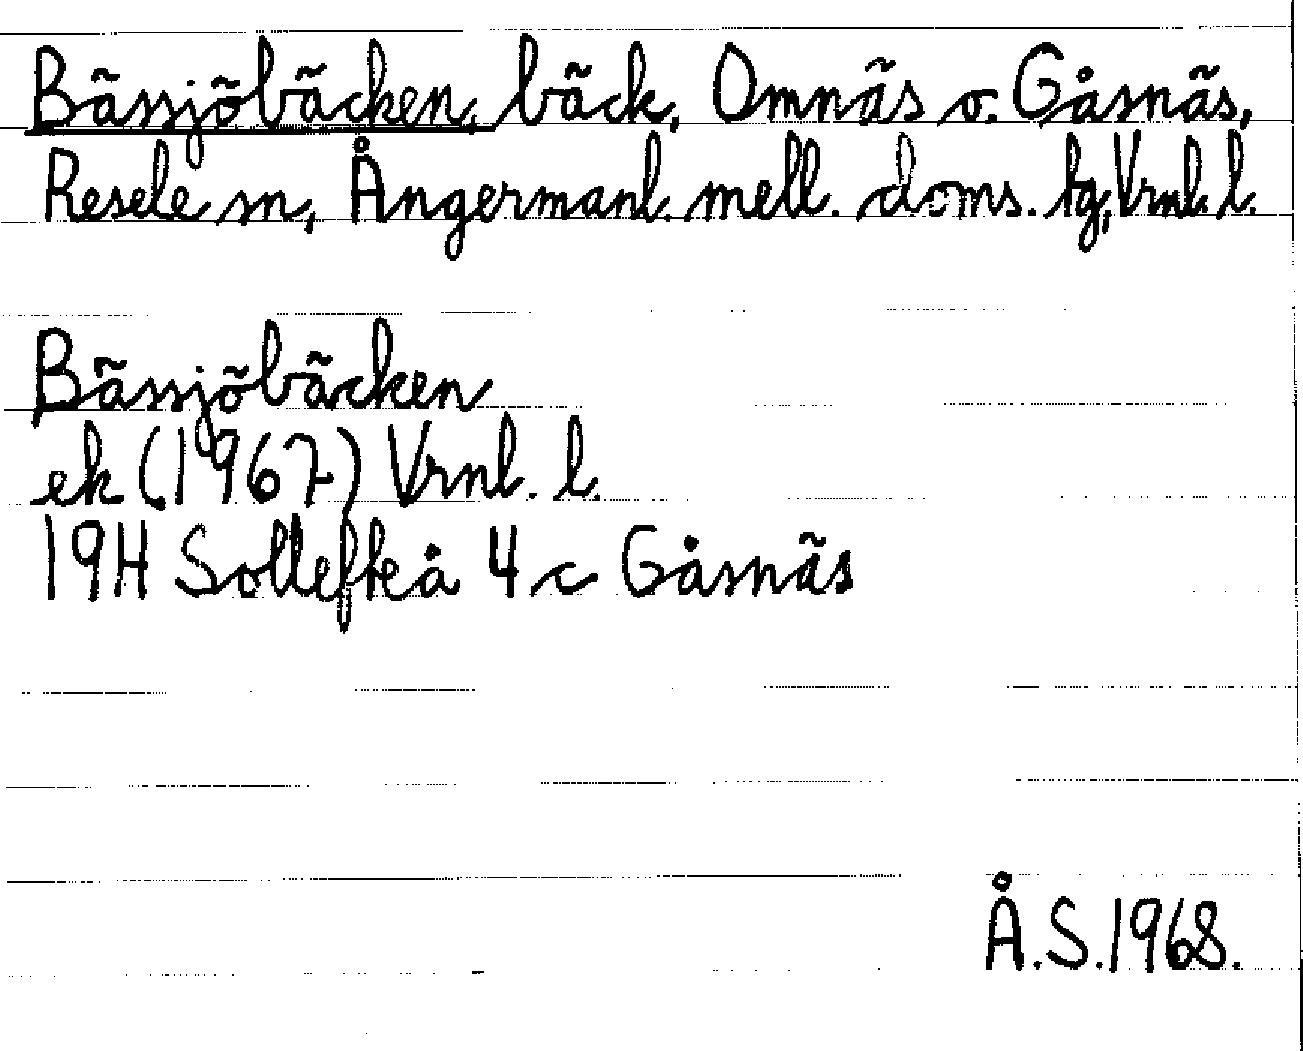 Bässjöbäcken, bäck, Omnäs o. Gåsnäs,
Resele sn, Ångermanl. mell. doms. tg, Vrnl. l.
Bässjöbäcken
ek (1967) Vrnl. l.
19H Sollefteå 4 c Gåsnäs
Å.S.1968.